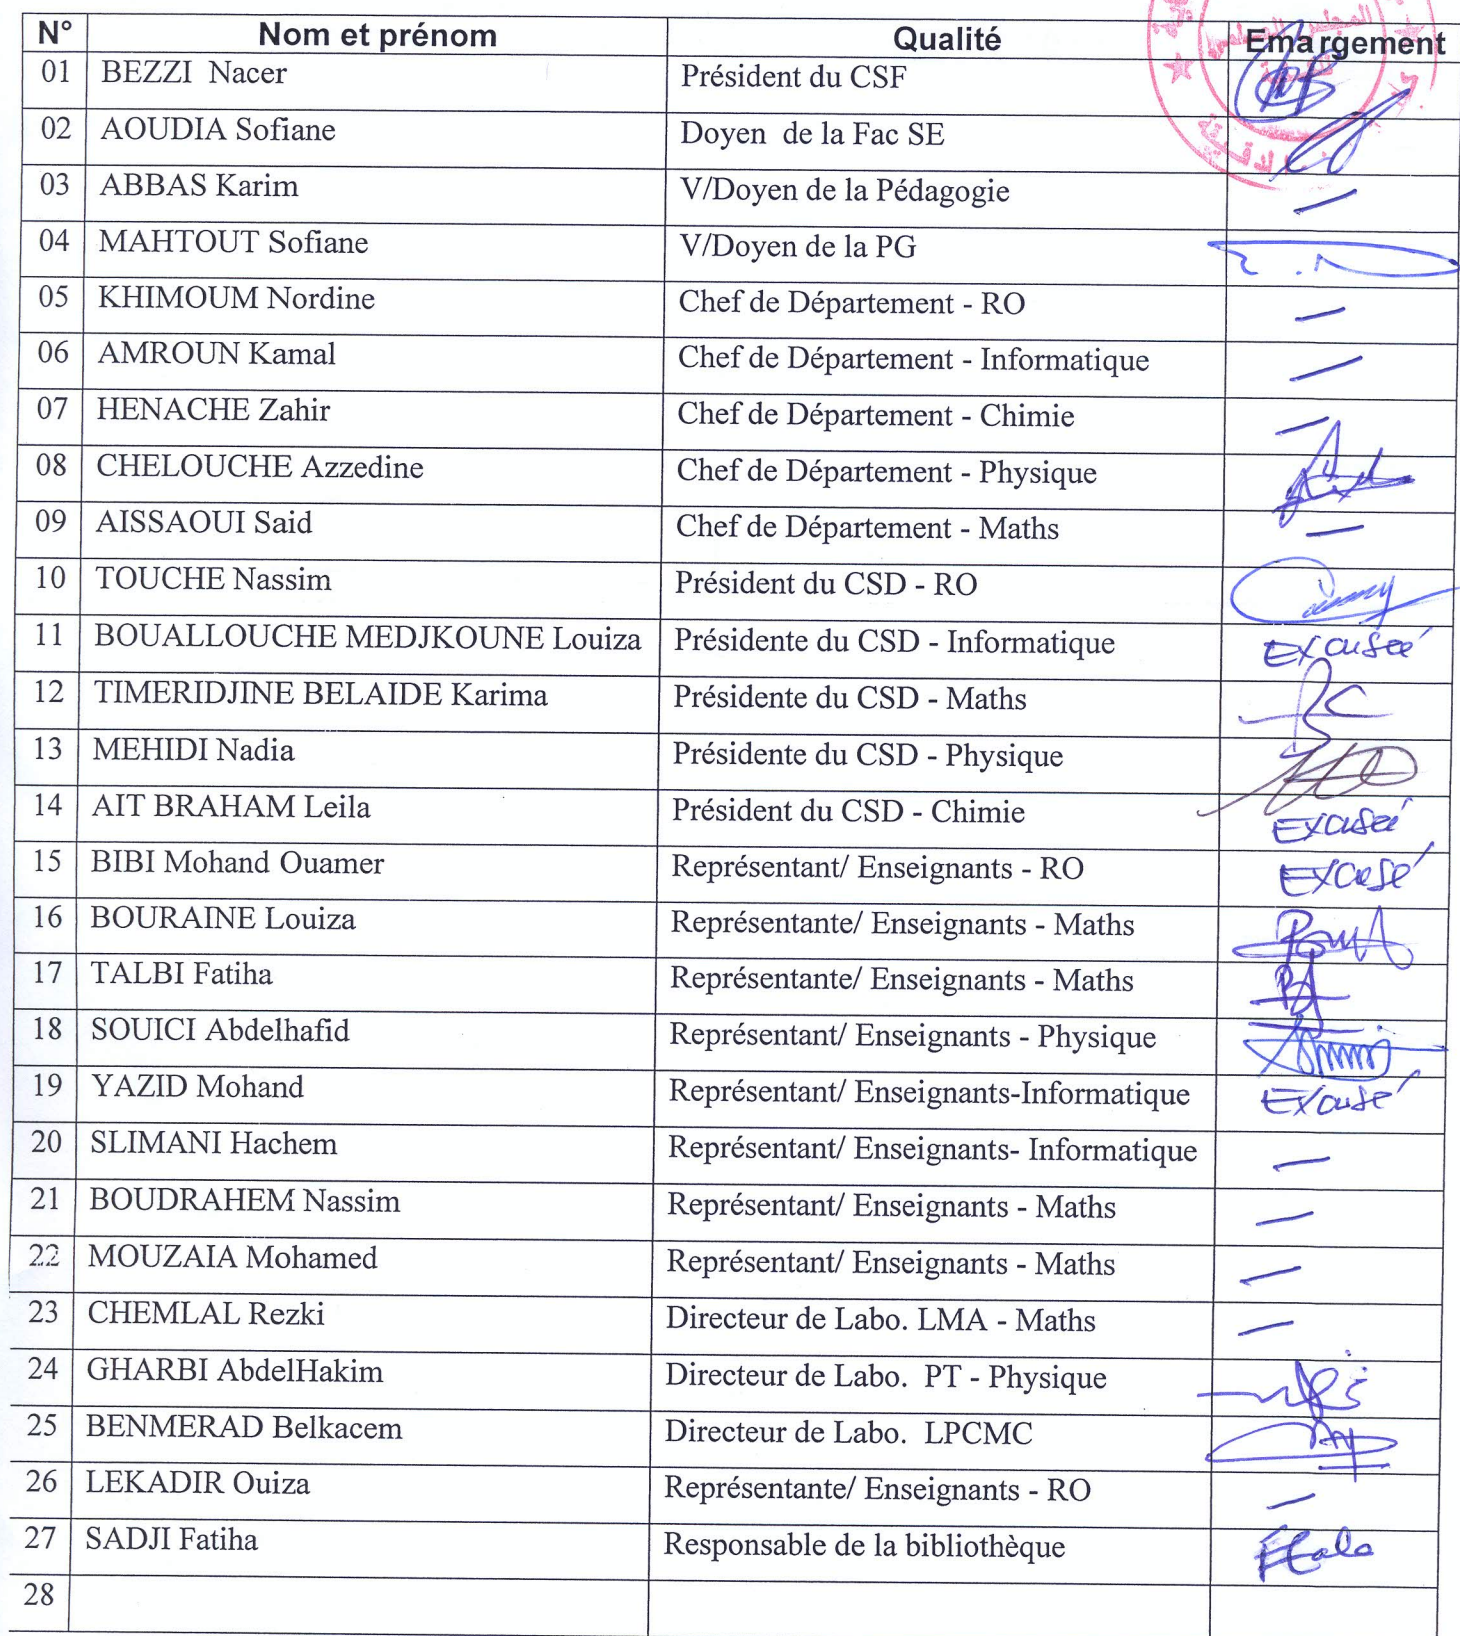 N° Nom et prénom Qualité Emargement
01 BEZZI Nacer Président du CSF
02 AOUDIA Sofiane Doyen de la Fac SE
03 ABBAS Karim V/Doyen de la Pédagogie —
04 MAHTOUT Sofiane V/Doyen de la PG
05 KHIMOUM Nordine Chef de Département - RO —
06 AMROUN Kamal Chef de Département - Informatique —
07 HENACHE Zahir Chef de Département - Chimie —
08 CHELOUCHE Azzedine Chef de Département - Physique
09 AISSAOUI Said Chef de Département - Maths —
10 TOUCHE Nassim Président du CSD - RO
11 BOUALLOUCHE MEDJKOUNE Louiza Présidente du CSD - Informatique Excusée
12 TIMERIDJINE BELAIDE Karima Présidente du CSD - Maths
13 MEHIDI Nadia Présidente du CSD - Physique
14 AIT BRAHAM Leila Président du CSD - Chimie Excusée
15 BIBI Mohand Ouamer Représentant/ Enseignants - RO Excusé
16 BOURAINE Louiza Représentante/ Enseignants - Maths
17 TALBI Fatiha Représentante/ Enseignants - Maths
18 SOUICI Abdelhafid Représentant/ Enseignants - Physique
19 YAZID Mohand Représentant/ Enseignants-Informatique Excusé
20 SLIMANI Hachem Représentant/ Enseignants- Informatique —
21 BOUDRAHEM Nassim Représentant/ Enseignants - Maths —
22 MOUZAIA Mohamed Représentant/ Enseignants - Maths —
23 CHEMLAL Rezki Directeur de Labo. LMA - Maths —
24 GHARBI AbdelHakim Directeur de Labo. PT - Physique
25 BENMERAD Belkacem Directeur de Labo. LPCMC
26 LEKADIR Ouiza Représentante/ Enseignants - RO —
27 SADJI Fatiha Responsable de la bibliothèque
28